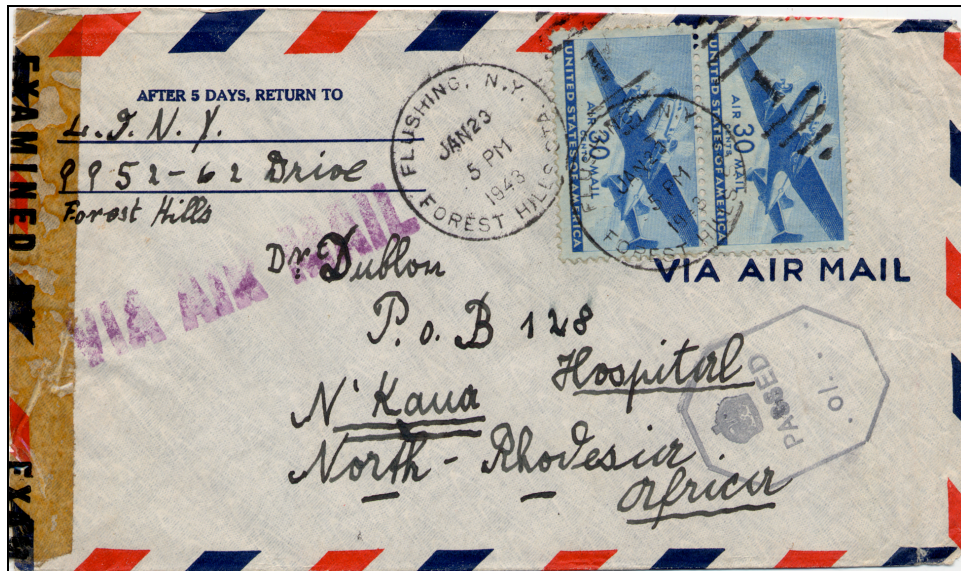 EXAMINED
EX
AFTER 5 DAYS, RETURN TO
L. J. N. Y.
9952-62 Drive
Forest Hills
FLUSHING, N.Y.
JAN 23
5 PM
1943
FOREST HILLS STA.
UNITED STATES OF AMERICA
AIR 30 MAIL
CENTS
UNITED STATES OF AMERICA
AIR 30 MAIL
CENTS
N.Y.
JAN 23
5 PM
1943
FOREST HILLS
VIA AIR MAIL
VIA AIR MAIL
Dr Dublon
P. o. B 128
Hospital
N'Kana
North-Rhodesia
Africa
PASSED
01.